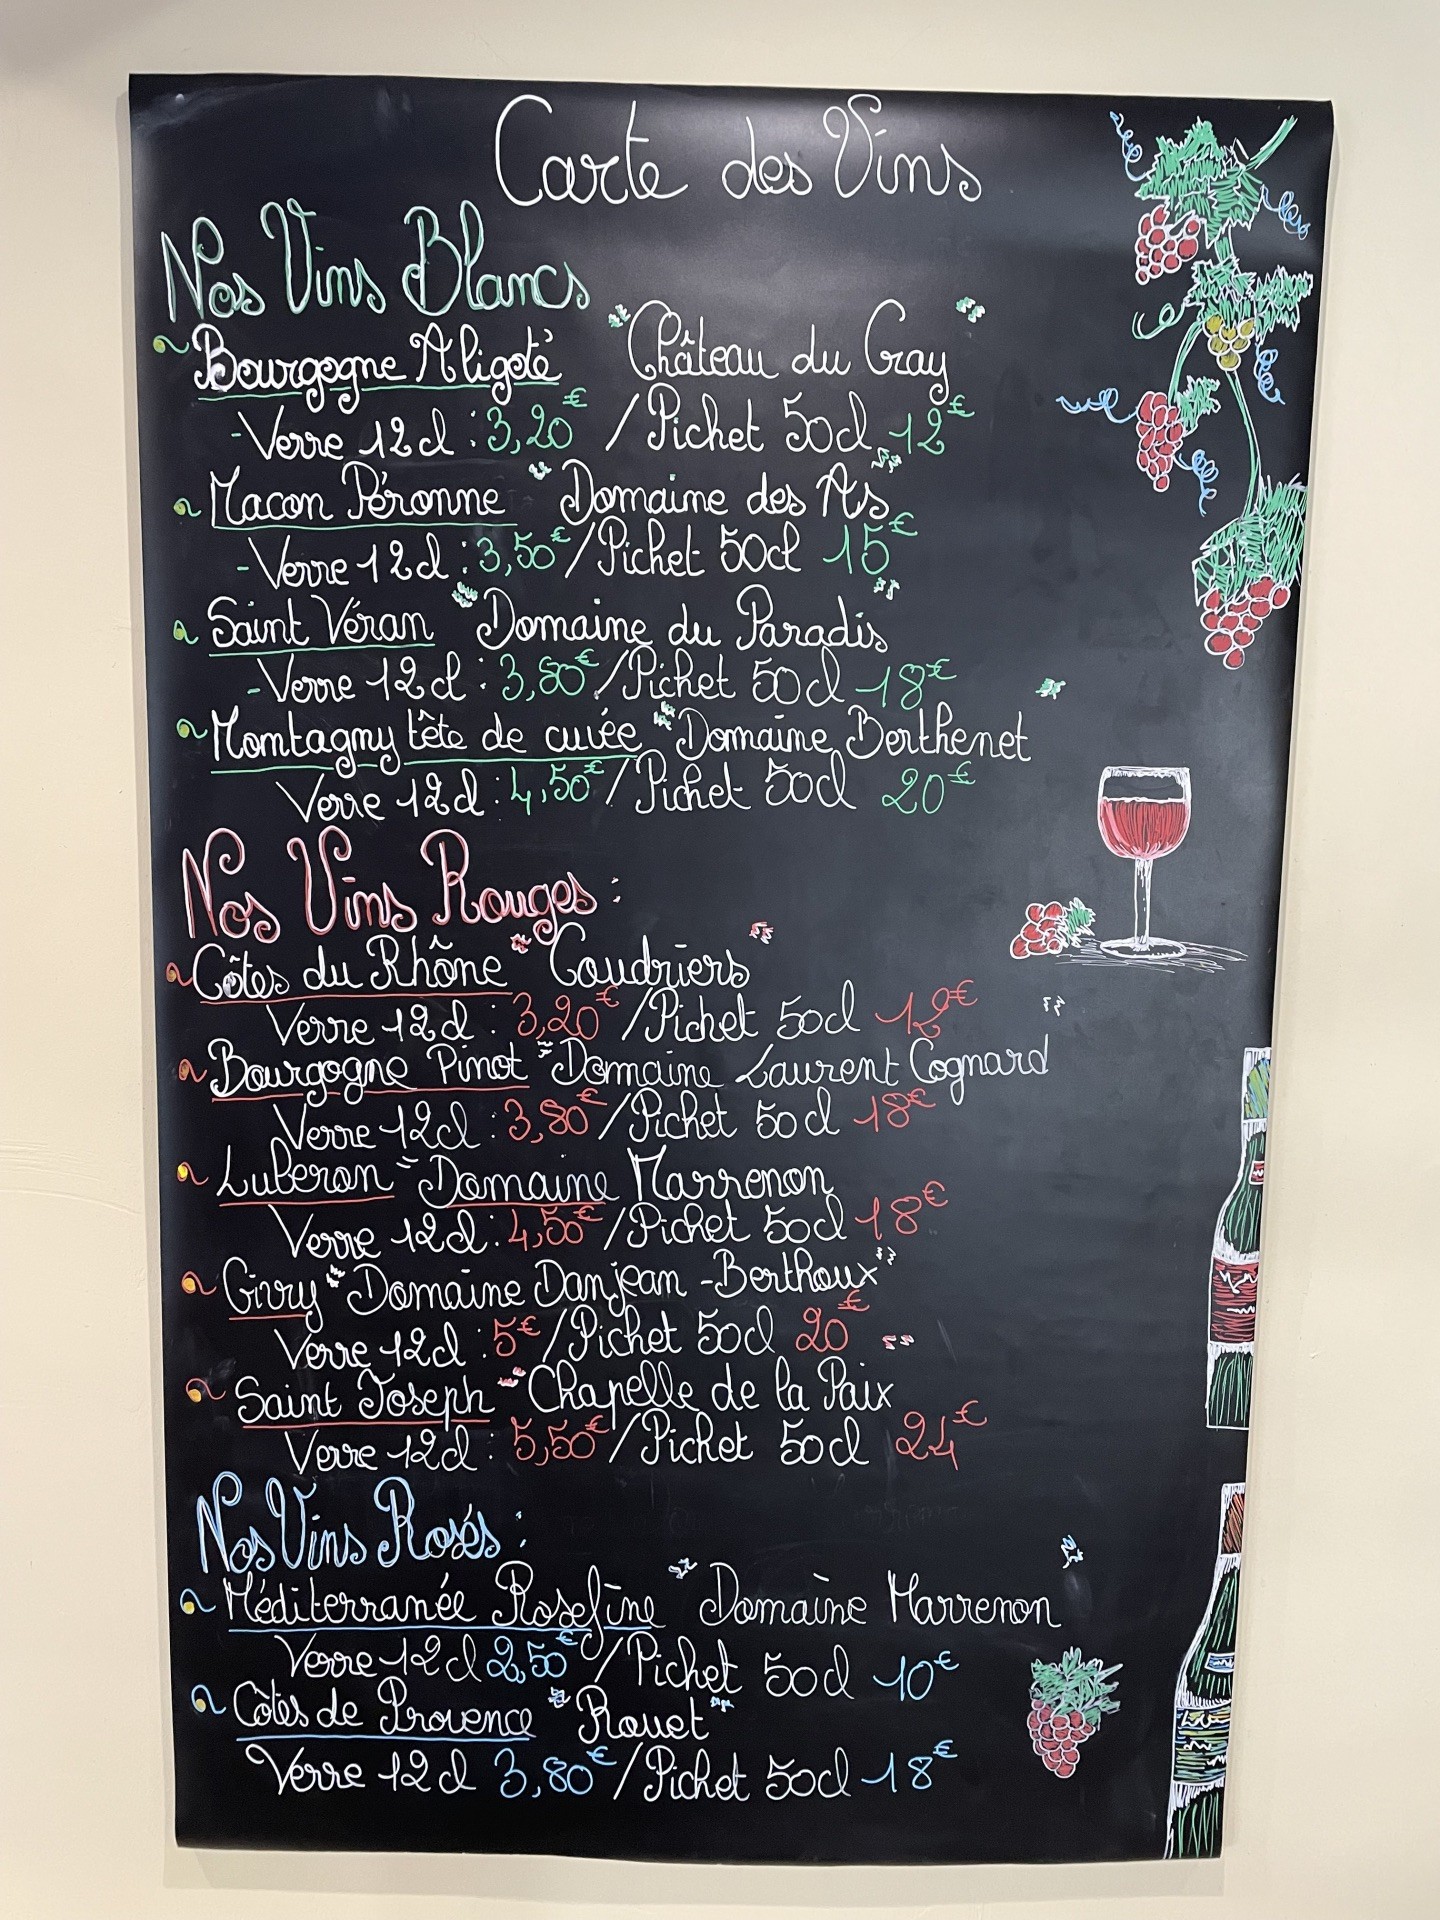 Carte des Vins
Nos Vins Blancs
Bourgogne Aligoté "Château du Gray"
- Verre 12cl : 3,20€ / Pichet 50cl 12€
Macon Péronne "Domaine des As"
- Verre 12cl : 3,50€ / Pichet 50cl 15€
Saint Véran "Domaine du Paradis"
- Verre 12cl : 3,80€ / Pichet 50cl 18€
Montagny tête de cuvée "Domaine Berthenet"
Verre 12cl : 4,50€ / Pichet 50cl 20€
Nos Vins Rouges :
Côtes du Rhône "Coudriers"
Verre 12cl : 3,20€ / Pichet 50cl 12€
Bourgogne Pinot "Domaine Laurent Cognard"
Verre 12cl : 3,80€ / Pichet 50cl 18€
Luberon "Domaine Marrenon
Verre 12cl : 4,50€ / Pichet 50cl 18€
Givry "Domaine Danjean-Berthoux"
Verre 12cl : 5€ / Pichet 50cl 20€
Saint Joseph "Chapelle de la Paix"
Verre 12cl : 5,50€ / Pichet 50cl 24€
Nos Vins Rosés :
Méditerranée Rosefine "Domaine Marrenon"
Verre 12cl 2,50€ / Pichet 50cl 10€
Côtes de Provence "Rouet"
Verre 12cl 3,80€ / Pichet 50cl 18€